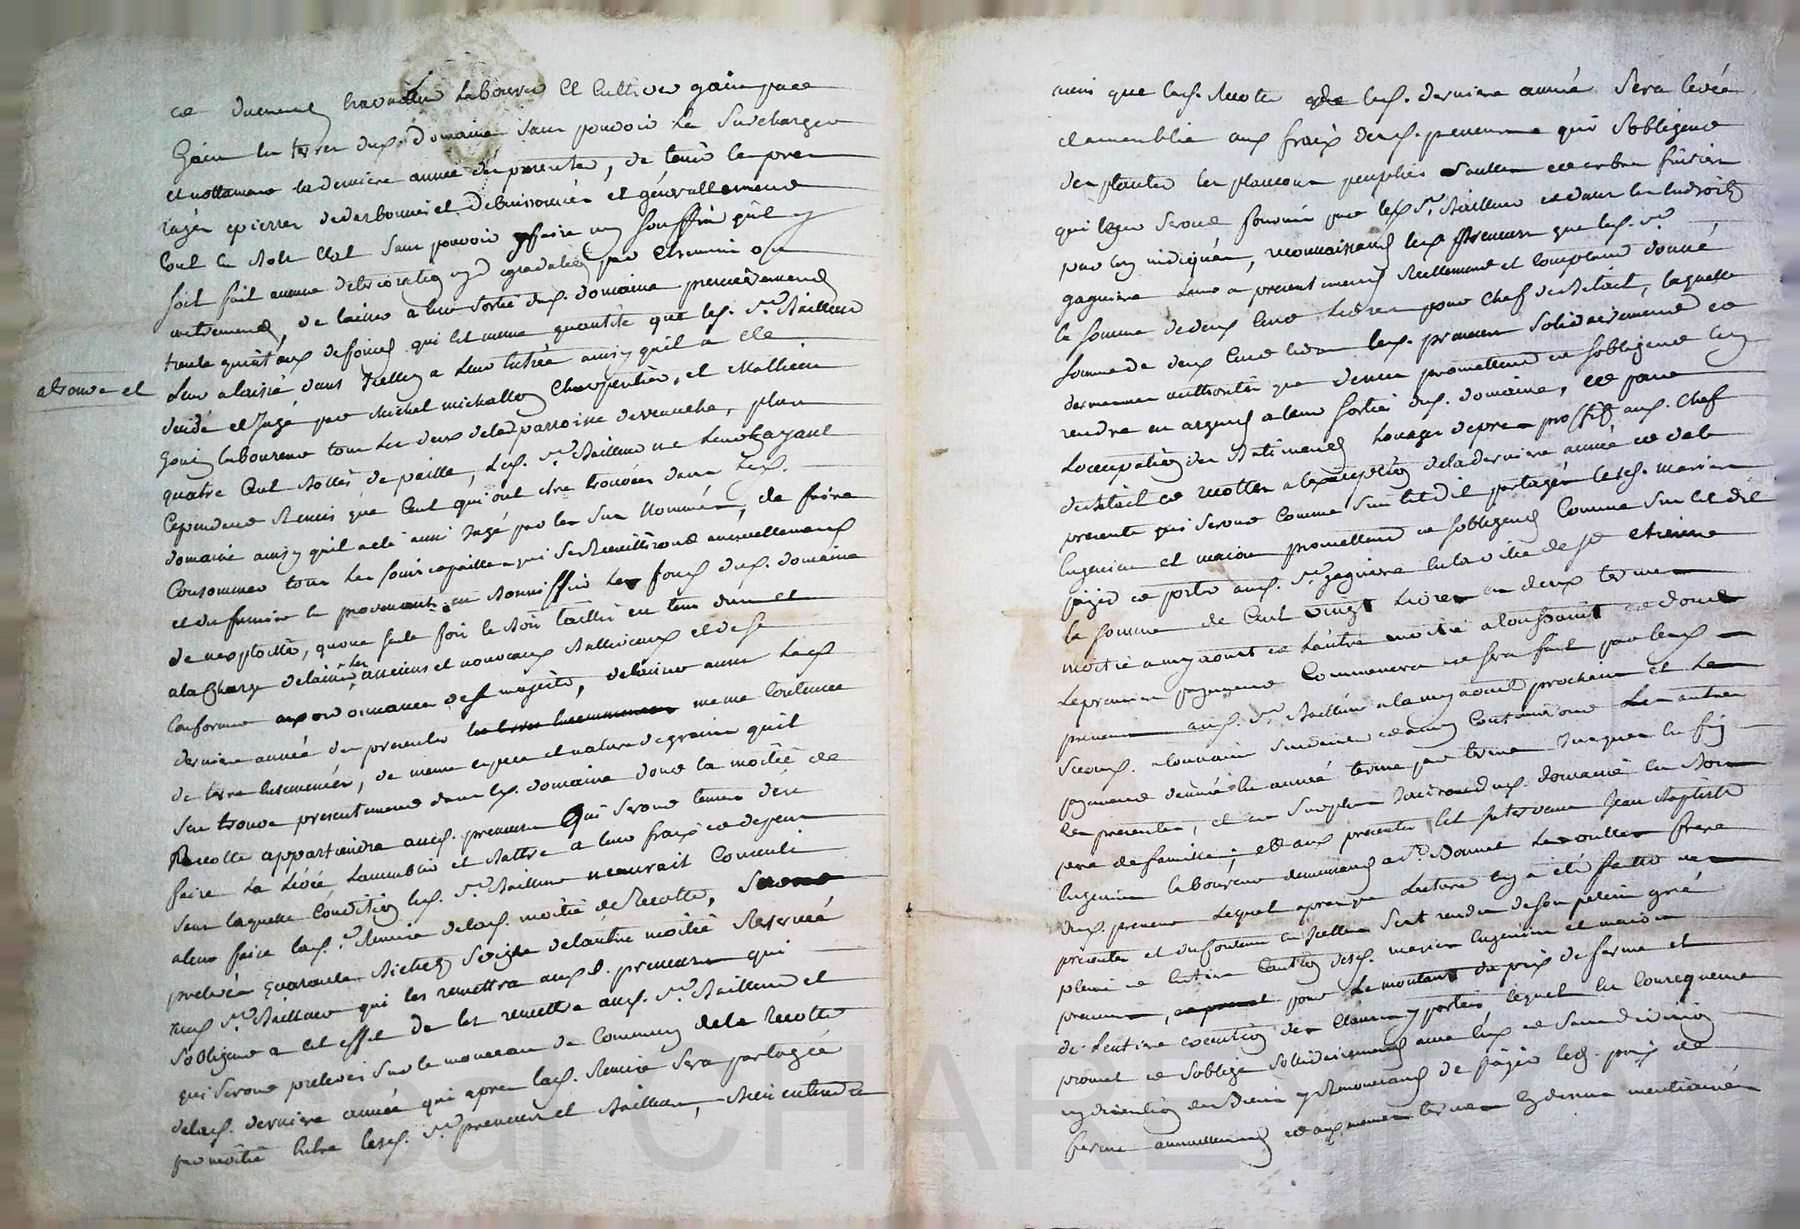 ce duement travailler labourer et cultiver gain par
Gain les terres dud. domaine sans pouvoir les surcharger
et nottament la derniere année des presentes, de tenir les prez
razés epierrés et debuissonnés et generallement
tout en bon etat sans pouvoir faire ny souffrir qu'il y
soit fait aucune deterioration ny degradation par chemin ou
autrement, de laisser a leur sortie dud. domaine premierement
trente quintaux de foins qui est meme quantité que led. Sr Bailleur
atrouve et
leur a laissé dans icelluy a leur entrée ainsy qu'il a été
vuidé et jugé par Michel michallon Charpentier, et Mathieu
laboureur tous les deux de la parroisse de , plus
quatre cent bottes de paille, led. Sr Bailleur ne leur ayant
cependant remis que cent qui ont etre trouvées dans led.
domaine ainsy qu'il a eté aussi jugé par les sus nommés, de faire
Consommer tous les foins et pailles qui se recueilliront annuellement
et du fumier en provenant en bonniffier les fonds dud. domaine
de n'exploitter, qu'une seule fois le bois taillis en tems du et
a la charge de laisser les anciens et nouveaux ballivaux et de se
conformer aux ordonnances de sa majesté, de laisser aussi lad.
derniere année des presentes meme contenue
de terre ensemencée, de meme espece et nature de grains qu'il
s'en trouve presentement dans led. domaine dont la moitié de
Recolte appartiendra auxd. preneurs qui seront tenus d'en
faire la levée l'assemblée et battre a leur frais et depens
sans laquelle Condition led. Sr Bailleur n'aurait Consenti
a leur faire lad. Remise de lad. moitié de Recolte, seront
prelevés quarante bichets seigle de l'autre moitié Reservée
aud. Sr Bailleur qui les remettra auxd. preneurs qui
s'obligent a cet effet de les remettre aud. Sr Bailleur et
qui seront prelevés sur le monceau de Commun de la Recolte
de lad. derniere année qui apres lad. Remise sera partagée
par moitié entre lesd. Sr preneurs et Bailleur, bien entendu
ainsi que lad. Recolte de lad. derniere année sera levée
et assemblée aux fraix desd. preneurs qui s'obligent
de planter les plançons peupliers saulles et arbres fruitiers
qui leur seront fournis par led. Sr Bailleur et dans les endroits
par luy indiqués, reconnaissant lesd. preneurs que led. Sr
gagniere leur a presentement reellement et comptant donné
la somme de deux cent livres pour chef de Bétail, laquelle
somme de deux cent livres lesd. preneurs solidairement et
des memes authorités que dessus promettent et s'obligent luy
rendre en argent a leur sortie dud. domaine, et pour
L'occupation des Batiments Louage de prez proffit aud. chef
de bétail et recoltes a l'exception de la derniere année et de la
presente qui seront comme sus est dit partagés lesd. mariés
Eugenien et maiore promettent et s'obligent Comme sus est dit
payer et porter aud. Sr gagniere en la ville de st etienne
la somme de Cent vingt livres en deux termes
moitié a my aoust et l'autre moitié a la toussaint et dont
Le premier payement Commencera et sera fait par lesd.
preneurs aud. Sr Bailleur a la my aoust prochain et le
second a la toussaint suivante et ainsy Continueront les autres
payements d'année en année terme par terme jusques en fin
des presentes, et en sus jouiront dud. domaine en bon
pere de famille; et aux presentes est intervenu Jean Baptiste
Eugenien laboureur demeurant a St Bonnet Les oulles frere
dud. preneur lequel apres que lecture luy a été faitte des
presentes et du contenu en icelles s'est rendu de son plein gré
plein et entiere caution desd. mariés Eugenien et maiore
preneurs, pour le montant du prix de ferme et
de l'entiere execution des clauses y portées lequel en consequence
promet et s'oblige sollidairement avec eux et sans division
ny discution des biens y Renonceant de payer led. prix de
ferme annuellement et aux memes termes cy dessus mentionnés